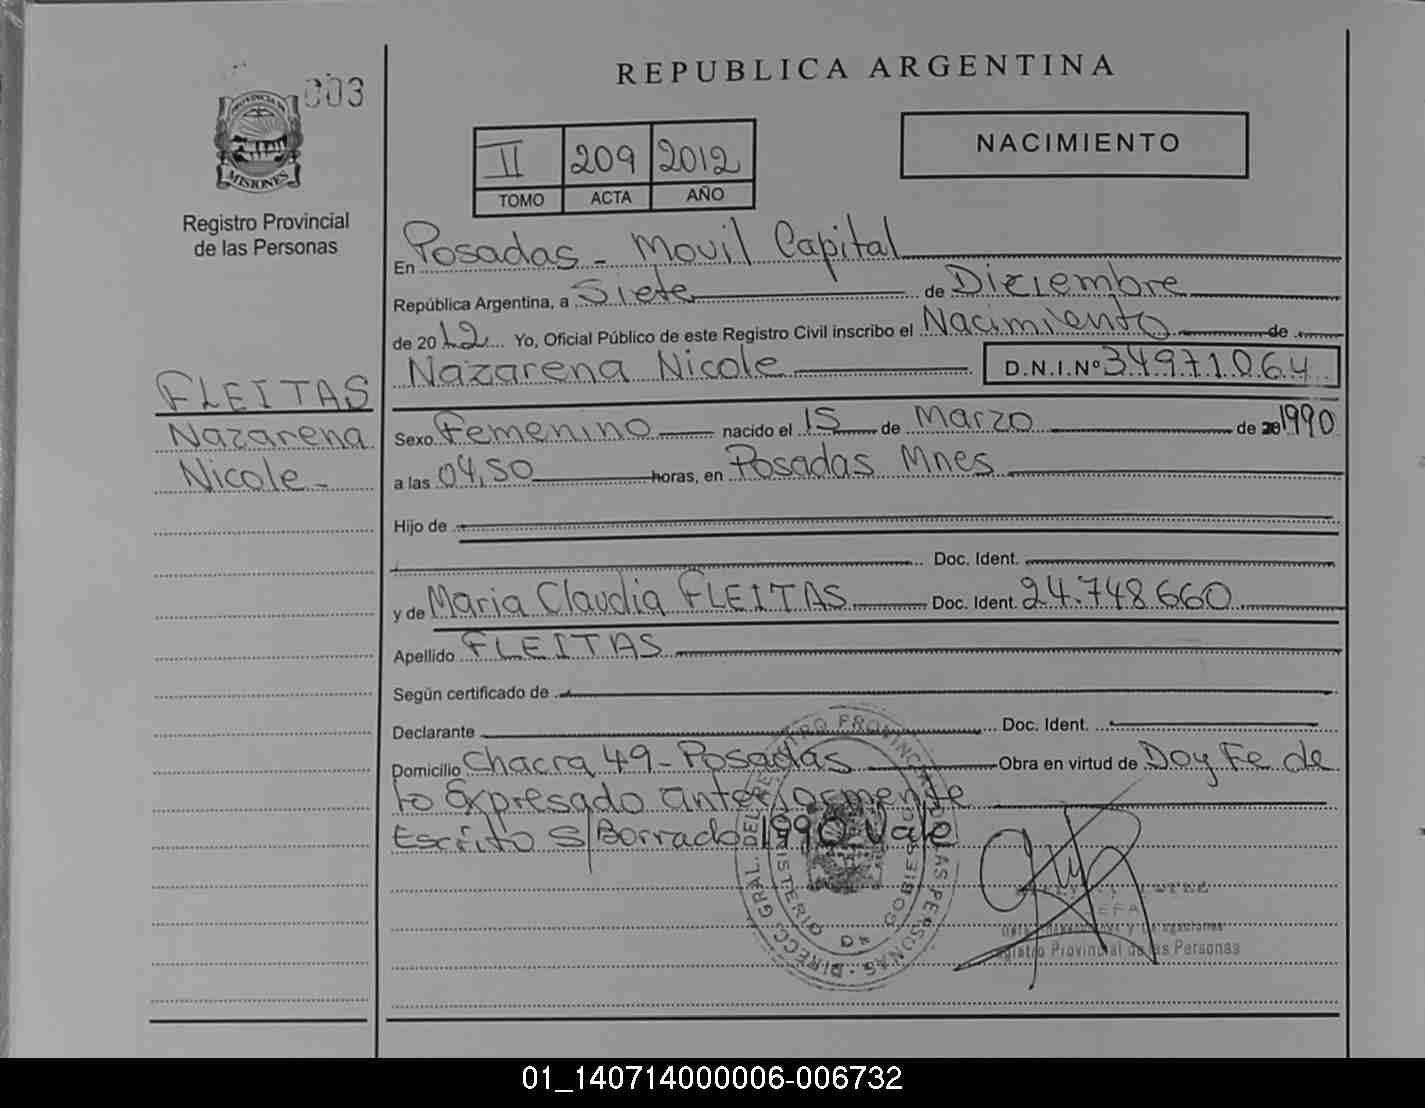 REPUBLICA ARGENTINA
003
PROVINCIA DE
MISIONES
Registro Provincial
de las Personas
NACIMIENTO
II 209 2012
TOMO ACTA AÑO
En Posadas - Movil Capital
República Argentina, a Siete de Diciembre
de 2012 Yo, Oficial Público de este Registro Civil inscribo el Nacimiento de
Nazarena Nicole D.N.I.Nº 34971064
FLEITAS
Nazarena
Nicole -
Sexo Femenino nacido el 15 de Marzo de 1990
a las 04,50 horas, en Posadas Mnes
Hijo de
Doc. Ident.
y de Maria Claudia FLEITAS Doc. Ident. 24.748660
Apellido FLEITAS
Según certificado de
Declarante Doc. Ident.
Domicilio Chacra 49 - Posadas Obra en virtud de Doy Fe de
lo Expresado anteriormente
Escrito S/Borrado 1990 Vale
DIRECC. GRAL. DEL REGISTRO PROVINCIAL DE LAS PERSONAS
MINISTERIO DE GOBIERNO
JEFA
Registro Provincial de las Personas
01_140714000006-006732